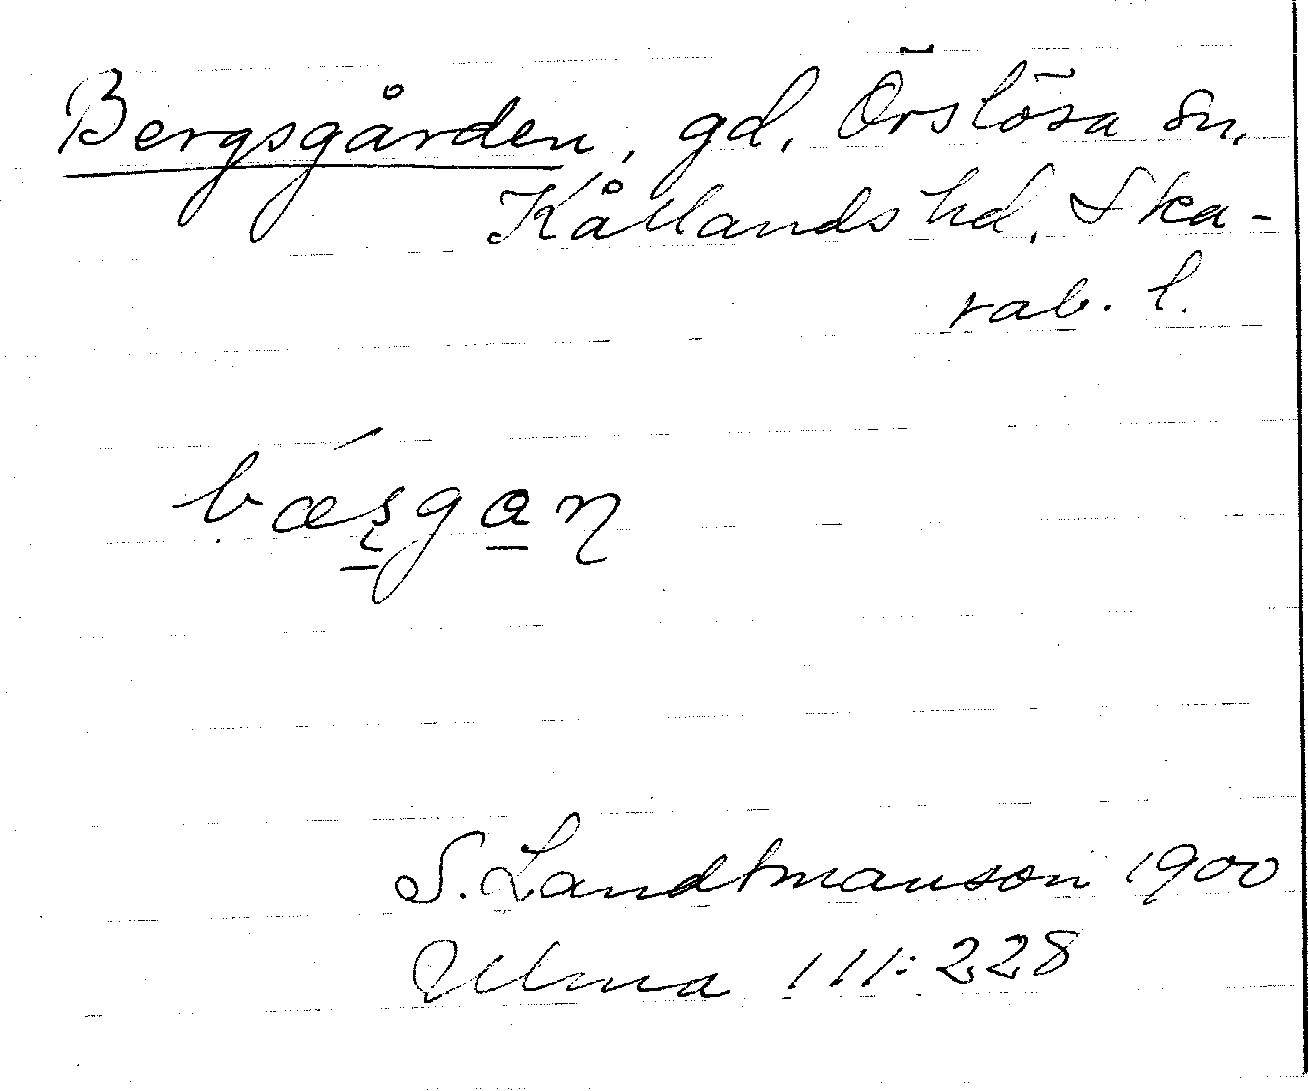 Bergsgården, gd, Örslösa sn,
Kållands hd, Ska-
rab. l.
bæ´ʂgaɳ
S. Landtmanson 1900
Ulma 111:228